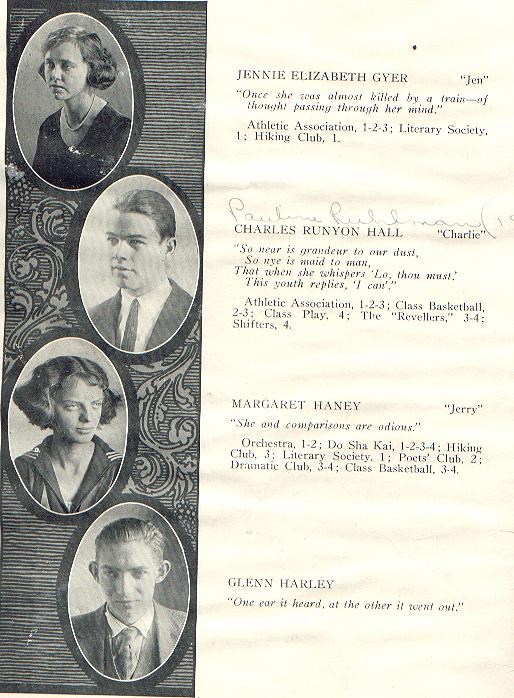 JENNIE ELIZABETH GYER "Jen"
"Once she was almost killed by a train—of
thought passing through her mind."
Athletic Association, 1-2-3; Literary Society,
1; Hiking Club, 1.
Pauline
CHARLES RUNYON HALL "Charlie"
"So near is grandeur to our dust,
So nye is maid to man,
That when she whispers 'Lo, thou must,'
This youth replies, 'I can'."
Athletic Association, 1-2-3; Class Basketball,
2-3; Class Play, 4; The "Revellers," 3-4;
Shifters, 4.
MARGARET HANEY "Jerry"
"She and comparisons are odious."
Orchestra, 1-2; Do Sha Kai, 1-2-3-4; Hiking
Club, 3; Literary Society, 1; Poets' Club, 2;
Dramatic Club, 3-4; Class Basketball, 3-4.
GLENN HARLEY
"One ear it heard, at the other it went out."